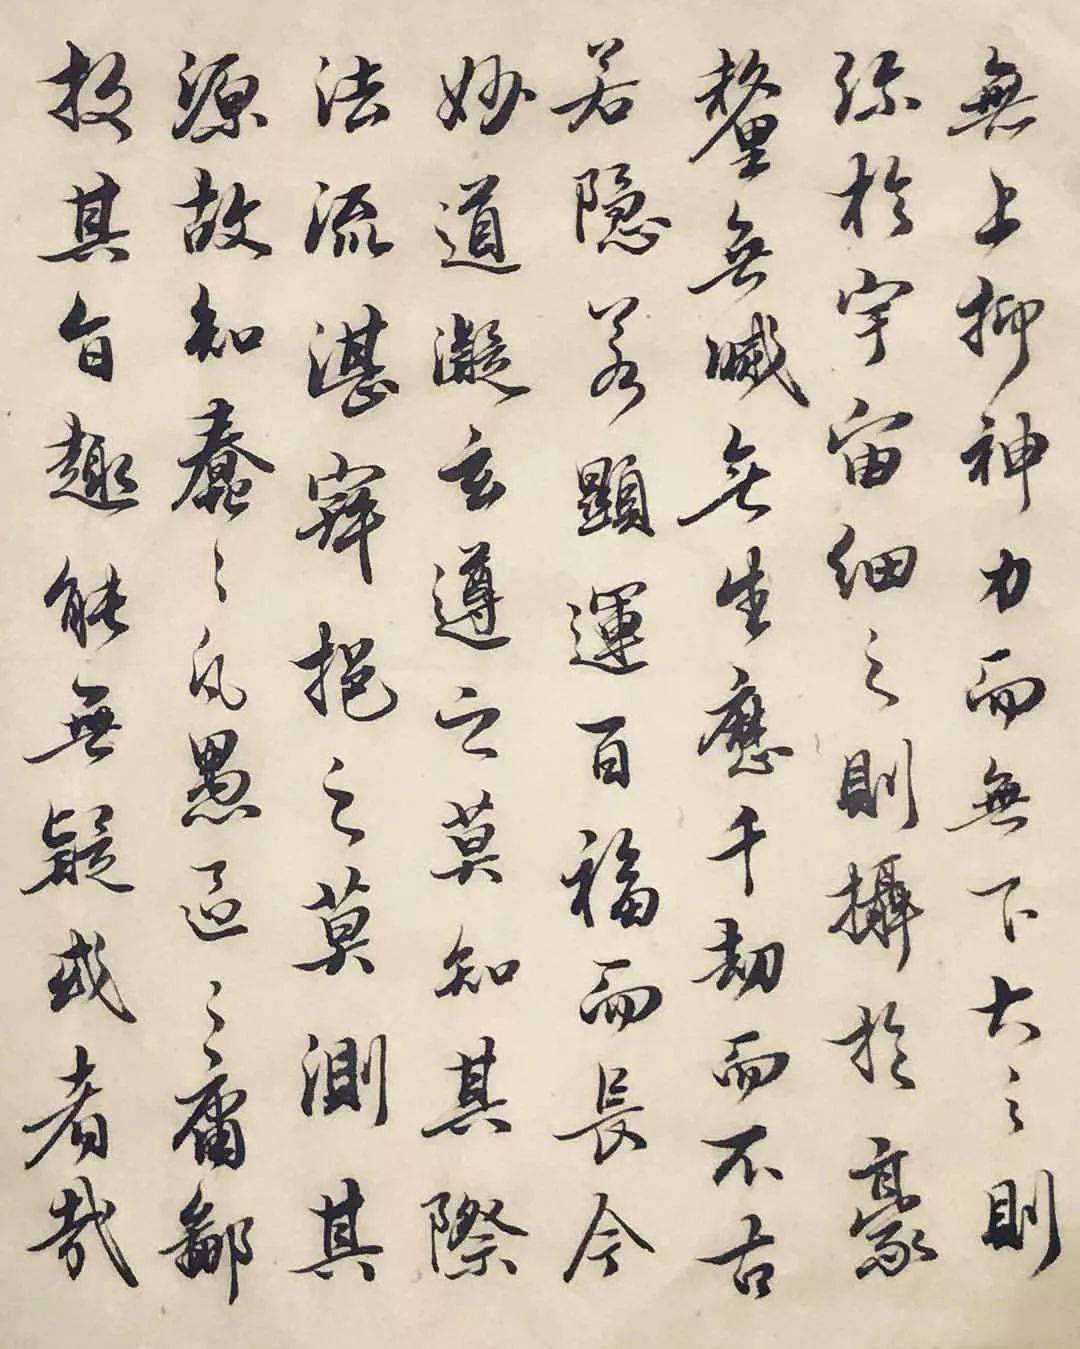 無上抑神力而無下大之則
弥於宇宙細之則攝於豪
釐無滅無生歷千劫而不古
若隱若顯運百福而長今
妙道凝玄遵之莫知其際
法流湛寂挹之莫測其
源故知蠢々凡愚區々庸鄙
投其旨趣能無疑或者哉